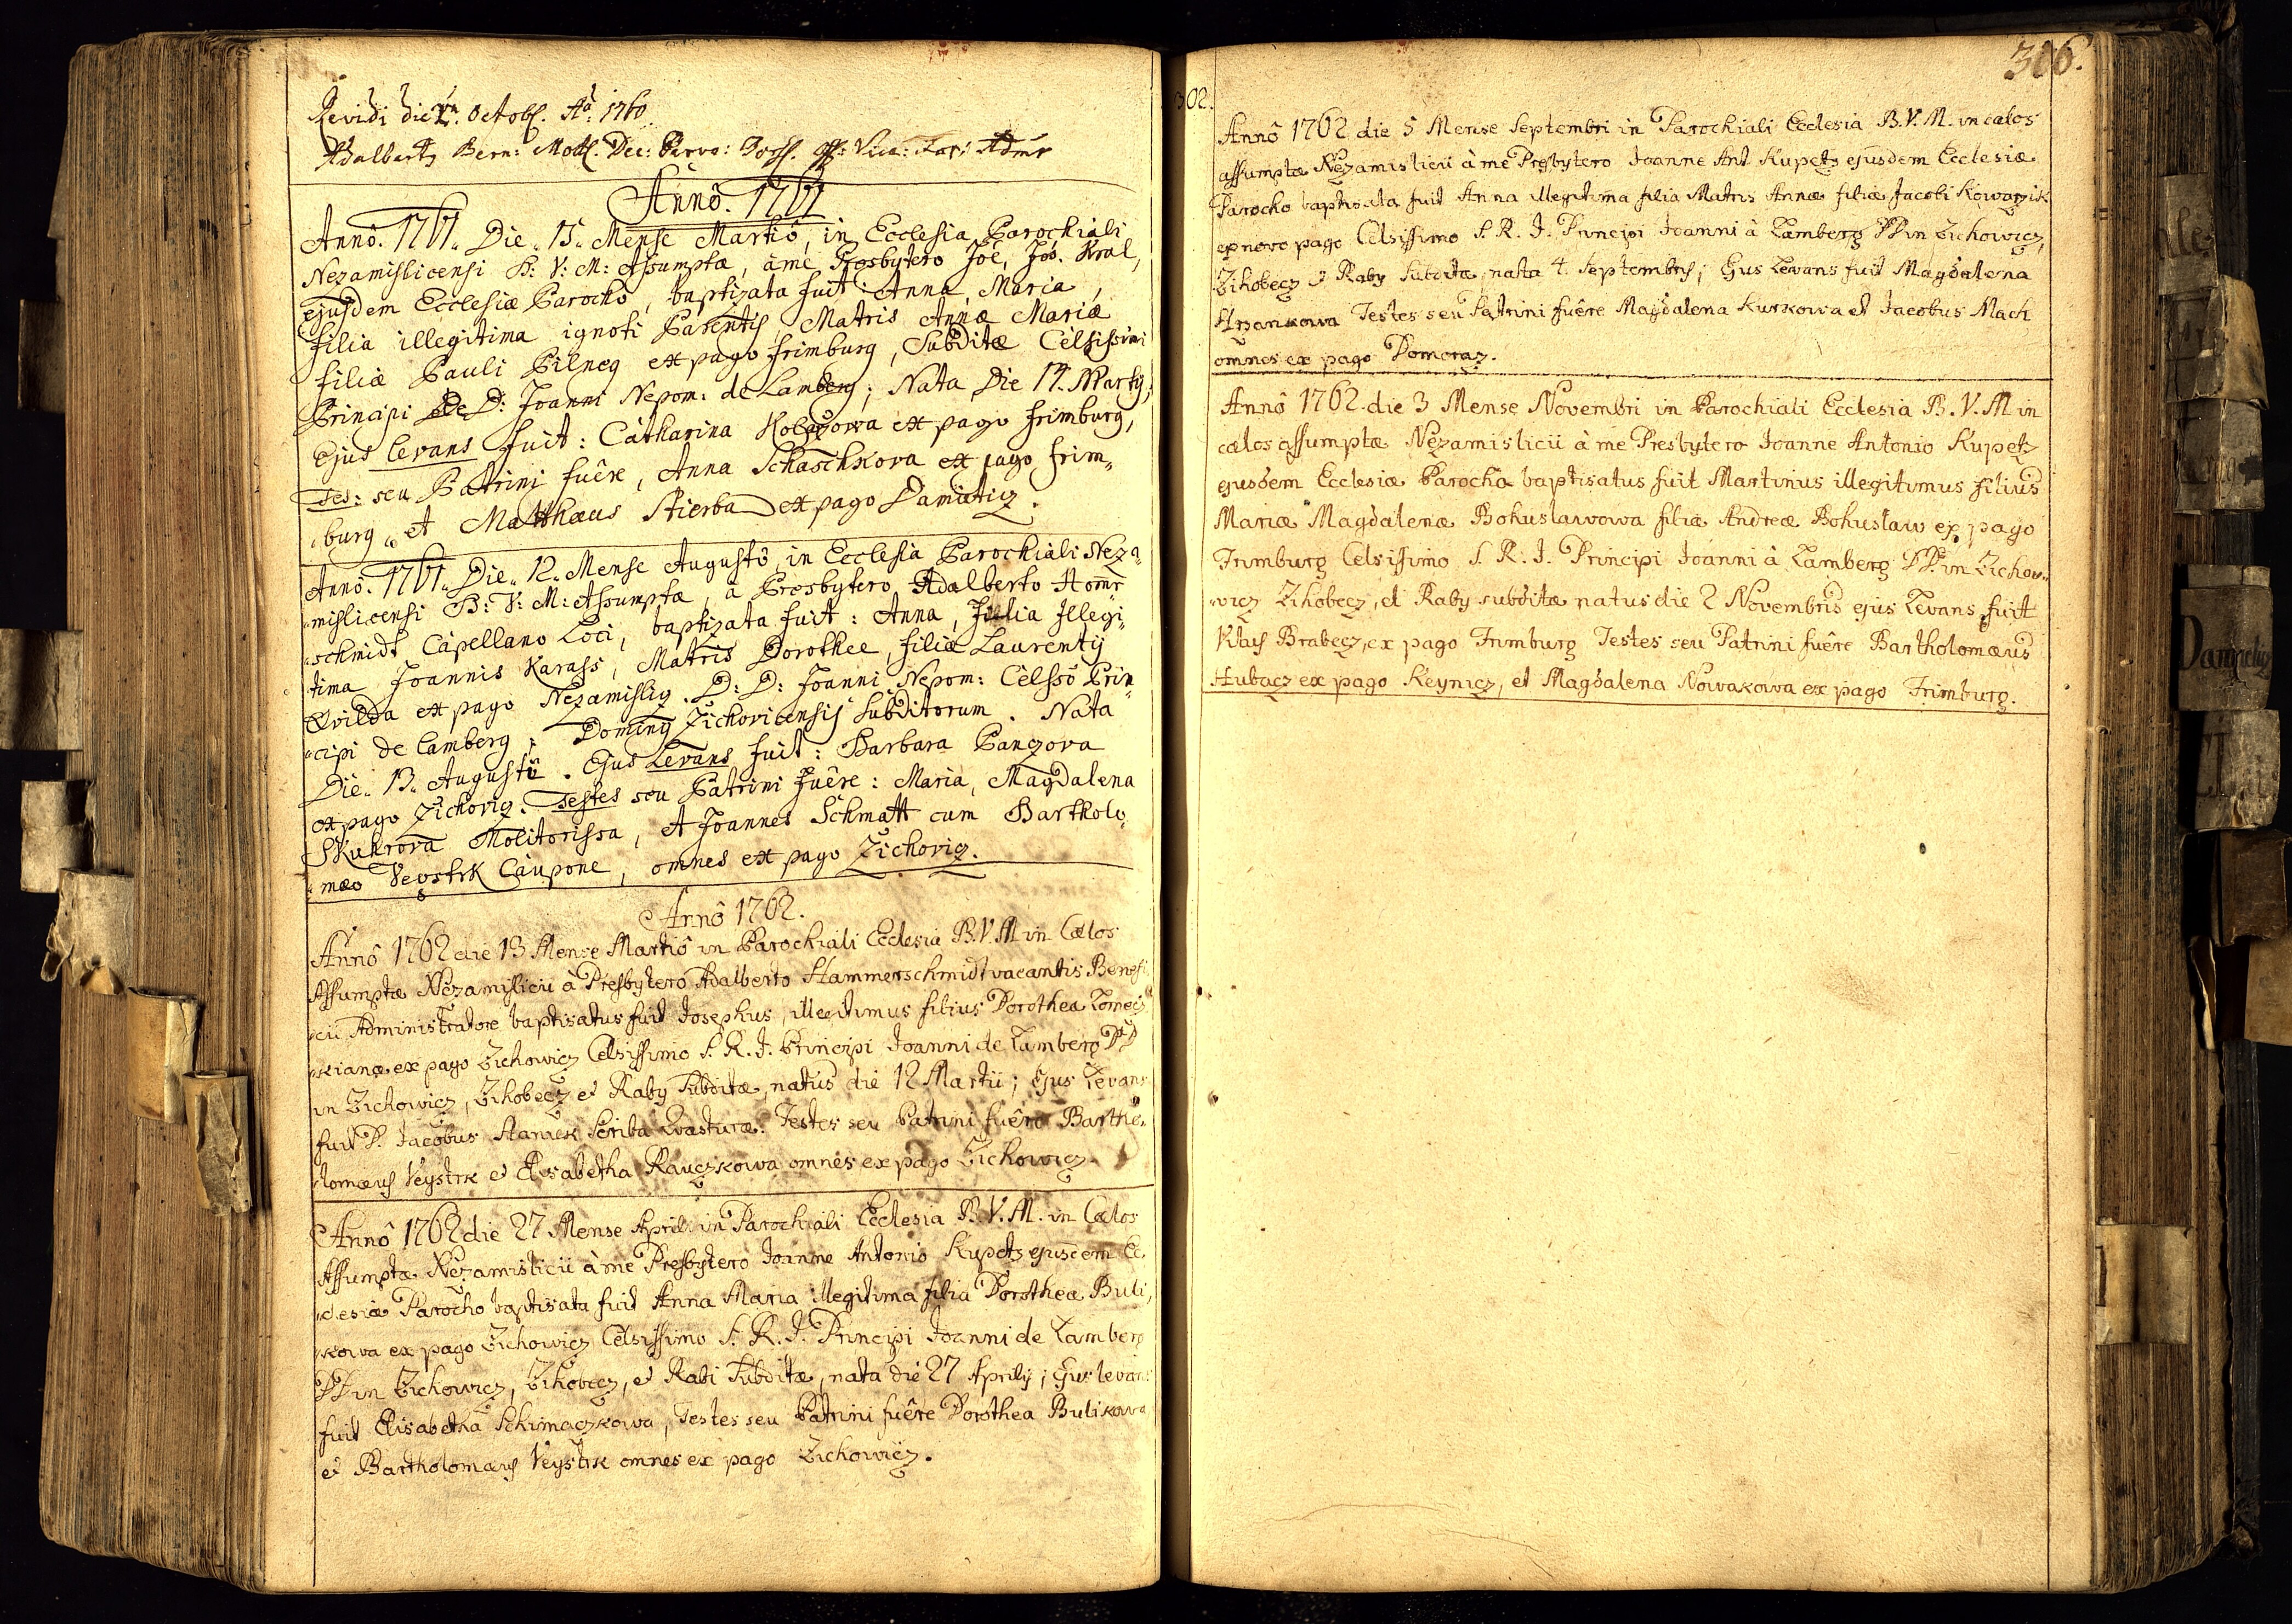 Revidi die Octobr. Aõ: 1760.
Adalbert Bern: Dec: Admr
Annô. 1761
Annô. 1761. Die. 15. Mense Martiô, in Ecclesia Parochiali
Nezamislicensi B: V: M: Assumptæ, à me Presbytero Joê, Jos. Kral,
ejusdem Ecclesiæ Parocho, baptizata fuit: Anna, Maria,
filia illegitima ignoti Parentis, Matris Annæ Mariæ
filiæ Pauli Pilneg ex pago frimburg, Subditæ Celsissimi
Principi D: Joanni Nepom: de Lamberg; Nata Die 14. Martij;
Ejus levans fuit: Catharina ex pago frimburg,
Tes: seu Patrini fuêre, Anna Schaschkova ex pago frim„
„burg„ et Matthæus Stierba ex pago Damiticz.
Annô. 1761„ Die„ 12„ Mense Augustô, in Ecclesia Parochiali Neza„
„mislicensi B: V: M: Assumptæ, a Presbytero Adalberto Hom̄r„
„schmidt Capellano Loci, baptizata fuit: Anna, filia Illegi„
tima Joannis Karass, Matris Dorothee, filiæ Laurentij
Qvilda ex pago Nezamislig. D: D: Joanni Nepom: Celsso Prin„
„cipi de Lamberg, Dominÿ Zichovicensis Subditorum. Nata
Die„ 13„ Augusti. Ejus Levans fuit: Barbara Panczova
ex pago Zichovig. Testes seu Patrini fuêre: Maria, Magdalena
Skuhrova Molitorissa, et Joannes Schmatt cum Bartholo„
„mæo Veystrk Caupone, omnes ex pago Zichovig.
Annô 1762.
Annô 1762 die 13 Mense Martiô in Parochiali Ecclesia B.V.M in Cælos
Assumptæ Nezamislicii à Presbytero Adalberto Hammerschmidt vacantis Benefi
„cii Administratore baptisatus fuit Josephus, illegitimus filius Dorotheæ Tomecz
„kianæ ex pago Zichowicz Celsissimo S. R. I. Principi Joanni de Lamberg DD
in Zichowicz, Zihobecz et Raby Subditæ, natus die 12 Martii; Ejus Levans
fuit D. Jacobus Hanzek Scriba Quæsturæ. Testes seu Patrini fuêre Bartho„
„lomæus Veystrk et Elisabetha Rauczkowa omnes ex pago Zichowicz.
Annô 1762 die 27 Mense April. in Parochiali Ecclesia B. V. M. in Cælos
Assumptæ Nezamislicii à me Presbytero Joanne Antonio Kupetz ejusdem Ec„
„clesiæ Parocho baptisata fuit Anna Maria illegitima filia Dorotheæ Buli„
„kowa ex pago Zichowicz Celsissimo S. R. I. Principi Joanni de Lamberg
DD in Zichowicz, Zihobecz, et Rabi Subditæ, nata die 27 Aprilis; Ejus levans
fuit Elisabetha Schimaczkowa, Testes seu Patrini fuêre Dorothea Bulikowa
et Bartholomæus Veystrk omnes ex pago Zichowicz.
302.
306.
Annô 1762 die 5 Mense Septembri in Parochiali Ecclesia B.V.M. in cælos
assumptæ Nezamislicii à me Presbytero Joanne Ant Kupetz ejusdem Ecclesiæ
Parocho baptisata fuit Anna illegitima filia Matris Annæ filiæ Jacobi Kowarzik
ex novo pago Celsissimo S. R. I. Principi Joanni à Lamberg DD in Zichowicz,
Zihobecz et Raby Subditæ, nata 4. Septembris; Ejus Levans fuit Magdalena
Hrzankowa Testes seu Patrini fuêre Magdalena Kurkowa et Jacobus Mach
omnes ex pago Domoraz.
Annô 1762 die 3 Mense Novembri in Parochiali Ecclesia B. V. M in
cælos assumptæ Nezamislicii à me Presbytero Joanne Antonio Kupetz
ejusdem Ecclesiæ Parocho baptisatus fuit Martinus illegitimus filius
Mariæ Magdalenæ Bohuslawowa filiæ Andreæ Bohuslaw ex pago
Frimburg Celsissimo S. R. I. Principi Joanni à Lamberg DD. in Zichow„
„wicz Zihobecz, et Raby subditæ natus die 2 Novembris ejus Levans fuit
Brabecz, ex pago Frimburg Testes seu Patrini fuêre Bartholomæus
Hubacz ex pago Keynicz, et Magdalena Nowakowa ex pago Frimburg.